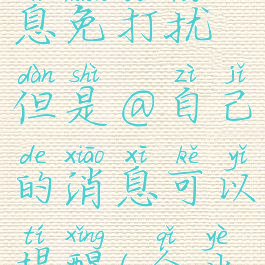 息免打扰
dàn shì zì jǐ
但是@自己
de xiāo xī kě yǐ
的消息可以
tí xǐng qǐ yè
提醒(企业